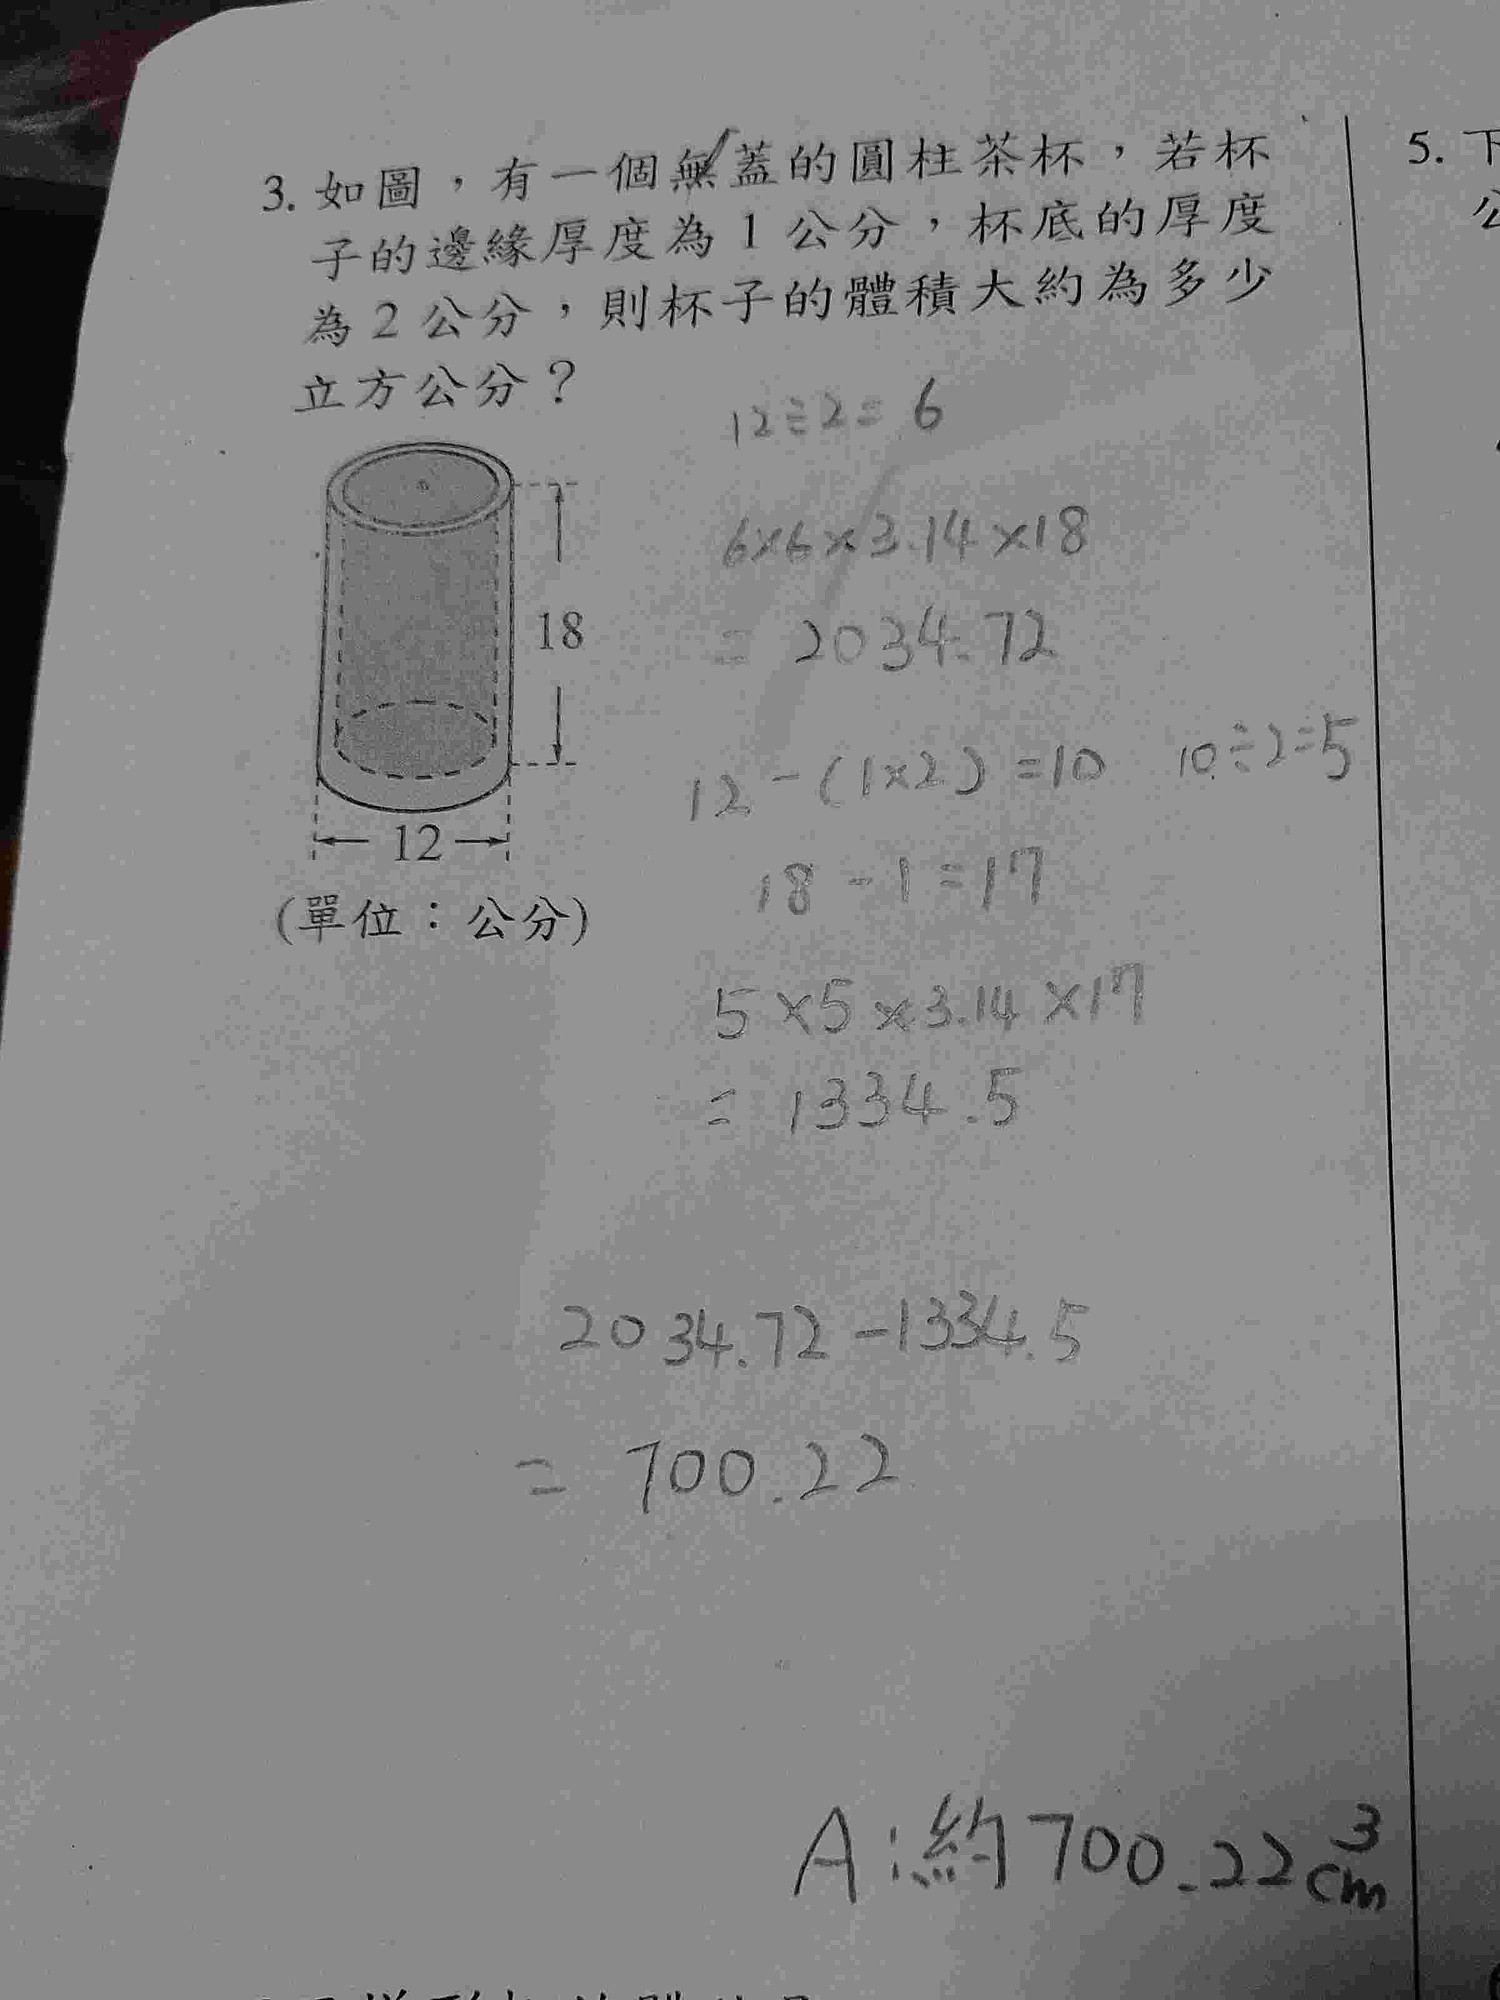 3. 如圖，有一個無蓋的圓柱茶杯，若杯
子的邊緣厚度為1公分，杯底的厚度
為2公分，則杯子的體積大約為多少
立方公分？
12÷2=6
6×6×3.14×18
18
= 2034.72
12-(1×2)=10 10÷2=5
12
18-1=17
(單位：公分)
5×5×3.14×17
= 1334.5
2034.72-1334.5
= 700.22
A:約700.22cm³
5. 下
公